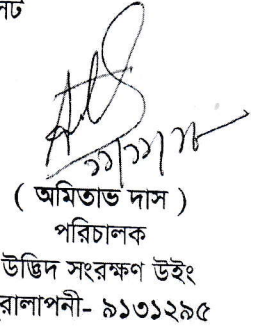 ( অমিতাভ দাস )
পরিচালক
উদ্ভিদ সংরক্ষণ উইং
রালাপনী- ৯১৩১২৯৫